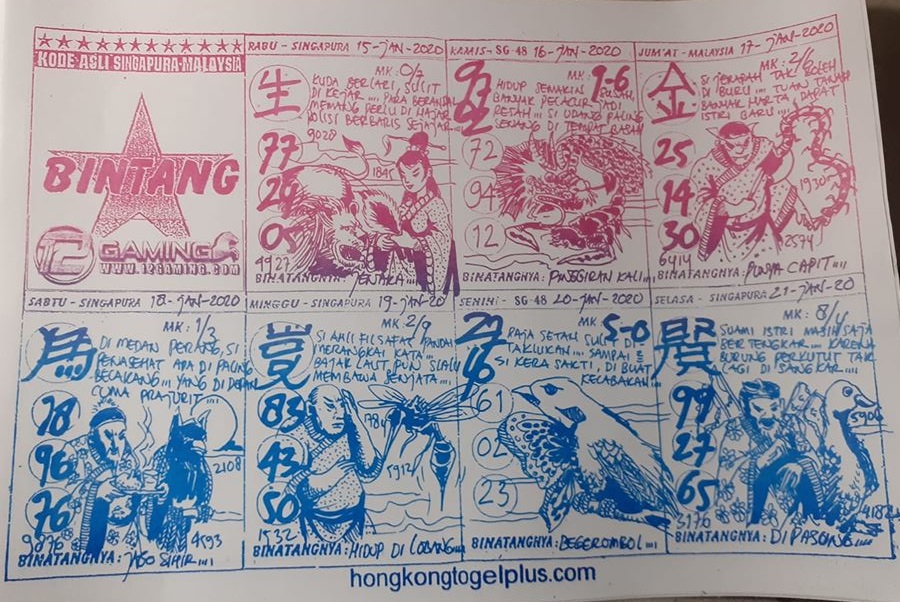 KODE ASLI SINGAPURA-MALAYSIA
BINTANG
12 GAMING
WWW.12GAMING.COM
RABU - SINGAPURA 15-JAN-2020
生
MK: 0/7
KUDA BERLARI, SULIT
DI KEJAR .... PARA BERANDAL
MEMANG PERLU DI HAJAR
POLISI BERBARIS SEJAJAR
9028
77
26
05
1845
4927
BINATANGNYA: JENAKA....
KAMIS - SG-48 16-JAN-2020
MK: 9-6
HIDUP SEMAKIN SUSAH,
BANYAK PELACUR JADI
BETAH.... SI UDANG PALING
SENANG DI TEMPAT BASAH
72
04
12
BINATANGNYA: PINGGIRAN KALI....
JUM'AT - MALAYSIA 17-JAN-2020
金
MK: 2/6
SI JERAPAH TAK BOLEH
DI BURU.... TUAN TANAH
BANYAK HARTA DAPAT
ISTRI BARU....
25
14
30
1930
6414
2574
BINATANGNYA: PUNYA CAPIT....
SABTU - SINGAPURA 18-JAN-2020
MK: 1/3
DI MEDAN PERANG, SI
PENASEHAT ADA DI PALING
BELAKANG... YANG DI DEPAN
CUMA PRAJURIT....
78
96
76
2108
9876
4593
BINATANGNYA: JAGO SIHIR....
MINGGU - SINGAPURA 19-JAN-20
MK: 2/9
SI AHLI FILSAFAT PANDAI
MERANGKAI KATA...
BAJAK LAUT PUN SLALU
MEMBAWA SENJATA....
83
43
50
5912
1532
BINATANGNYA: HIDUP DI LOBANG....
SENIN - SG-48 20-JAN-2020
5-0
RAJA SETAN SULIT DI
TAKLUKAN.... SAMPAI
SI KERA SAKTI, DI BUAT
KECAPAKAN....
61
02
23
BINATANGNYA: BEGEROMBOL....
SELASA - SINGAPURA 21-JAN-20
MK: 8/4
SUAMI ISTRI MASIH SAJA
BERTENGKAR.... KARENA
BURUNG PERKUTUT TAK
LAGI DI SANGKAR....
99
27
65
5906
3176
4182
BINATANGNYA: DI PASUNG....
hongkongtogelplus.com